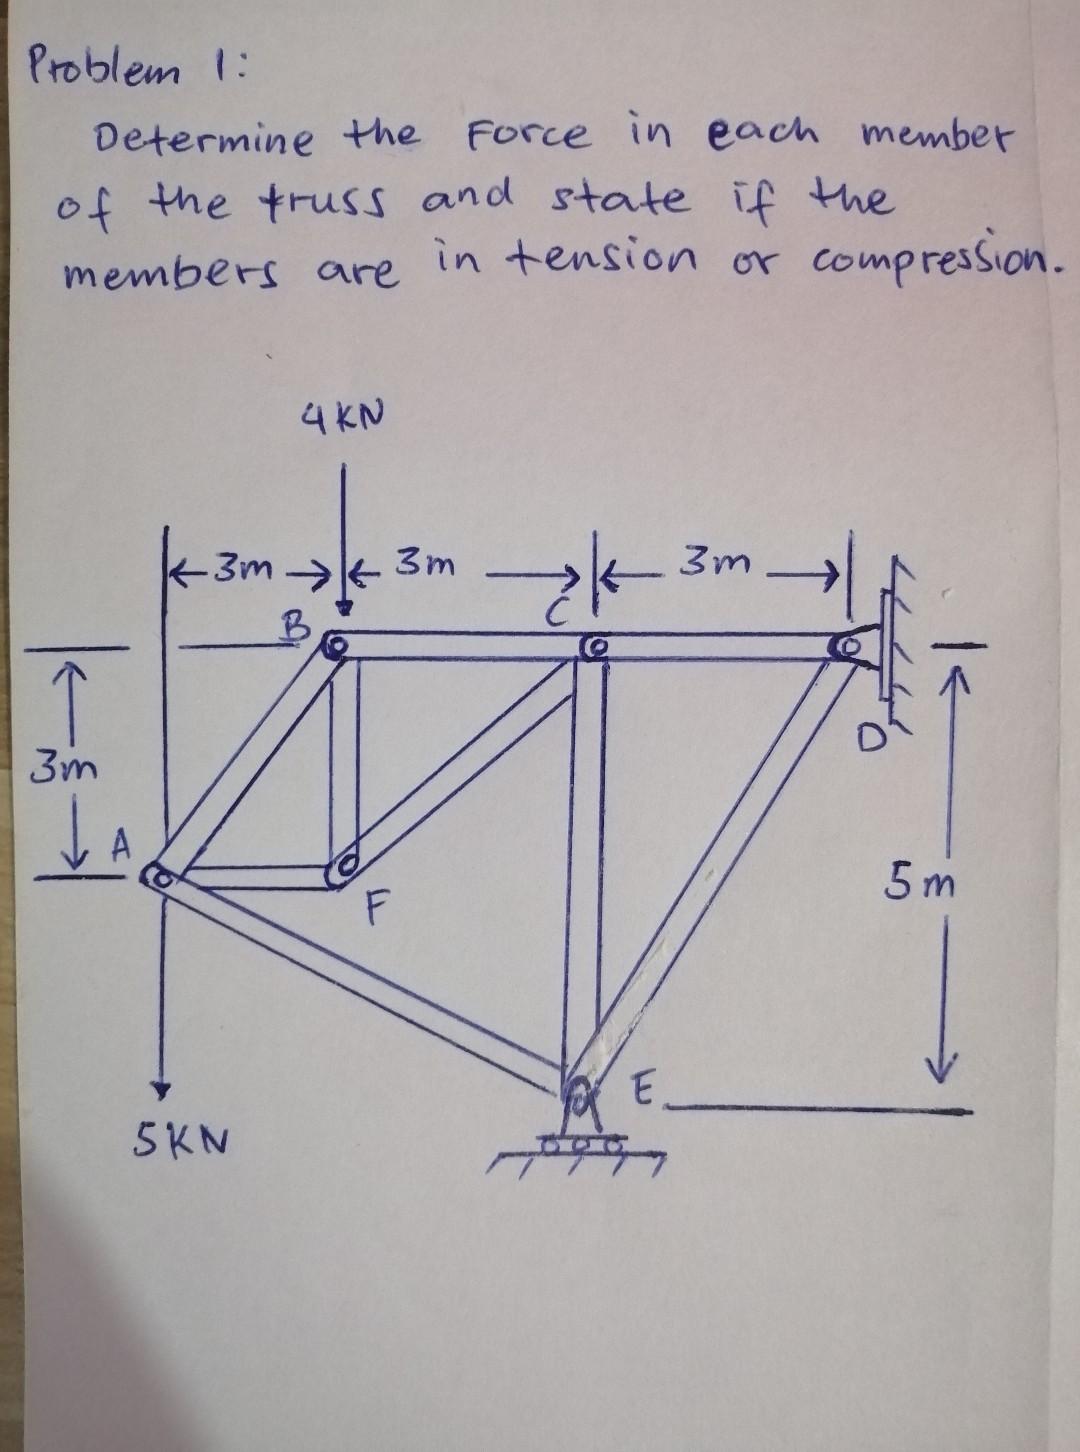 Problem 1:
Determine the Force in each member
of the truss and state if the
members are in tension or compression.
4KN
3m 3m 3m
B C
3m
D
A
5m
F
E
5KN